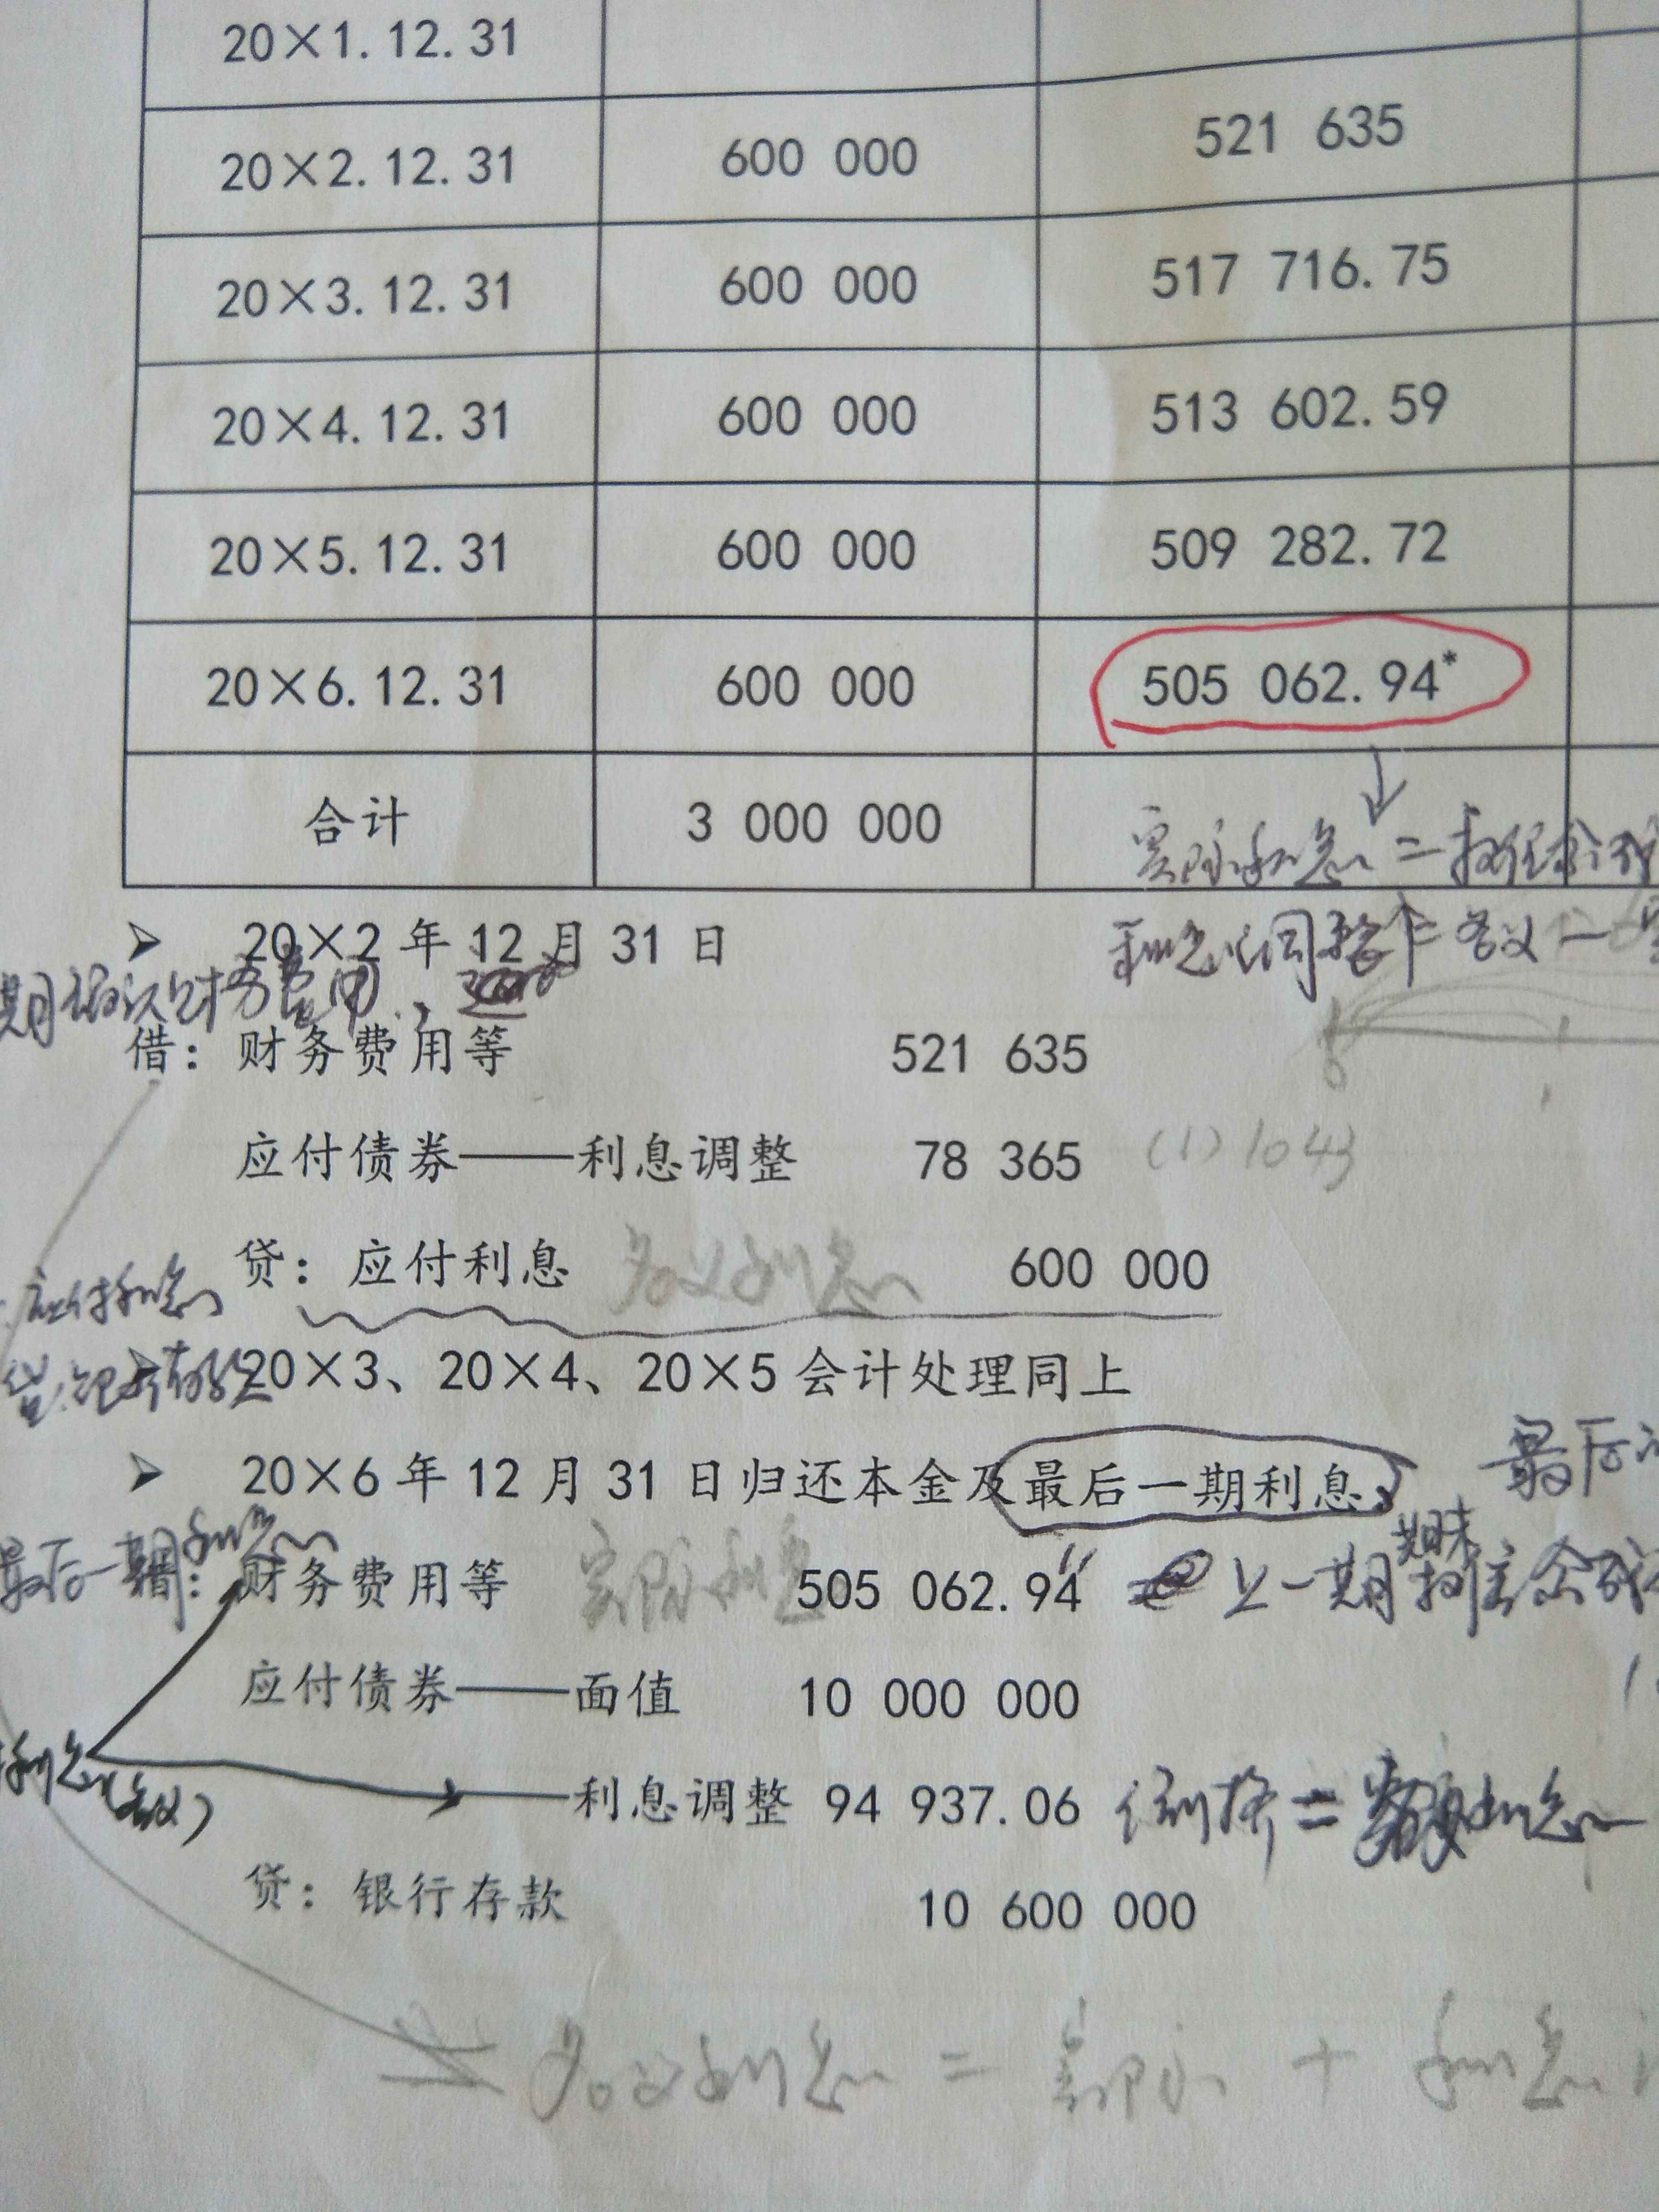 20×1.12.31
20×2.12.31 600 000 521 635
20×3.12.31 600 000 517 716.75
20×4.12.31 600 000 513 602.59
20×5.12.31 600 000 509 282.72
20×6.12.31 600 000 505 062.94*
合计 3 000 000
实际利息 = 摊余成
利息调整 = 名义 一 实
➢ 20×2 年 12 月 31 日
期确认财务费用,
借：财务费用等 521 635
应付债券——利息调整 78 365 (1)1043
贷：应付利息 名义利息 600 000
应付利息
贷:银行存款
➢ 20×3、20×4、20×5 会计处理同上
➢ 20×6 年 12 月 31 日归还本金及最后一期利息。 最后
最后一期利息
借：财务费用等 实际利息 505 062.94 上一期期末摊余成本
应付债券——面值 10 000 000
利息(名义)
——利息调整 94 937.06 倒挤 = 利息
贷：银行存款 10 600 000
名义利息 = 实际 + 利息